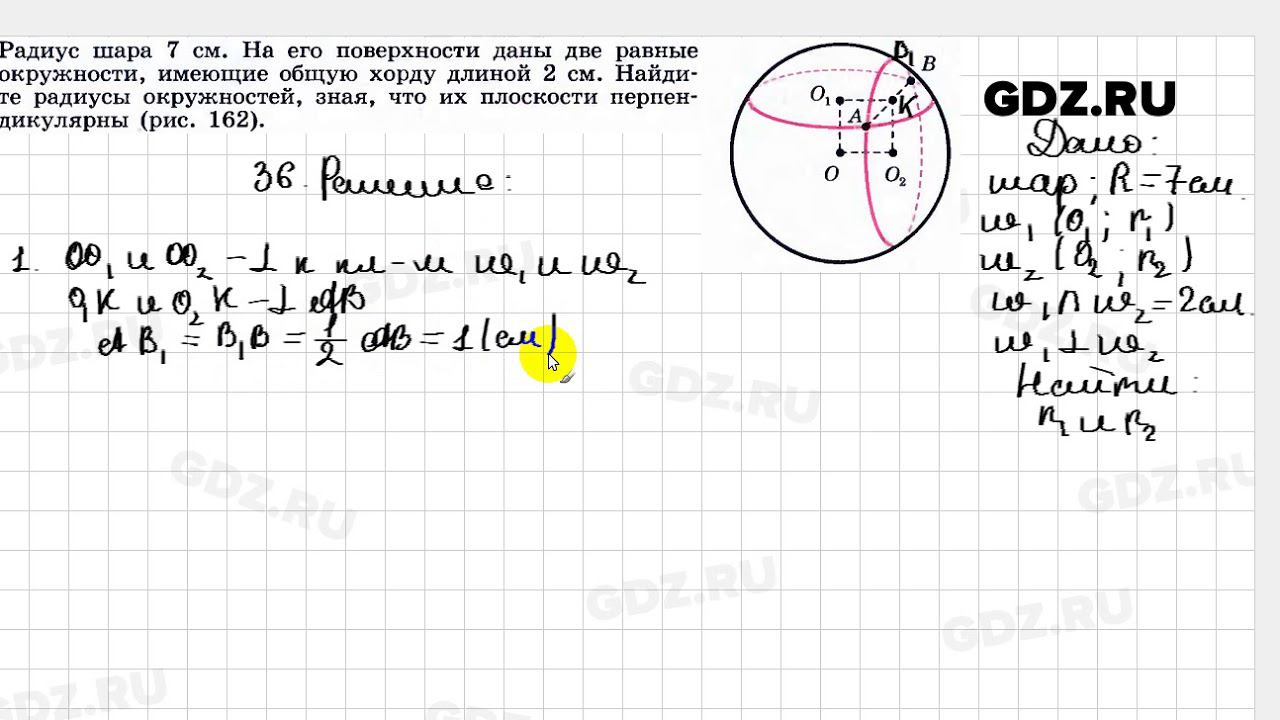 Радиус шара 7 см. На его поверхности даны две равные
окружности, имеющие общую хорду длиной 2 см. Найди-
те радиусы окружностей, зная, что их плоскости перпен-
дикулярны (рис. 162).
36. Решение:
1. OO₁ и OO₂ – ⊥ к пл-м ω₁ и ω₂
O₁K и O₂K – ⊥ AB
AB₁ = B₁B = 1/2 AB = 1 (см)
B₁
B
O₁
K
A
O
O₂
GDZ.RU
Дано:
шар; R = 7 см
ω₁ (O₁; r₁)
ω₂ (O₂; r₂)
ω₁ ∩ ω₂ = 2 см.
ω₁ ⊥ ω₂
Найти:
r₁ и r₂
GDZ.RU
GDZ.RU
GDZ.RU
GDZ.RU
GDZ.RU
GDZ.RU
GDZ.RU